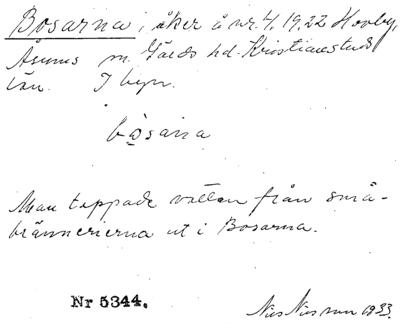 Bosarna, åker å nr 4, 19, 22 Hovby,
Åhus m. Gärds hd. Kristianstads
län. I byn.
bosarna
Man tappade vatten från små-
brännerierna ut i Bosarna.
Nr 5344.
Nils Nilsson 1933.